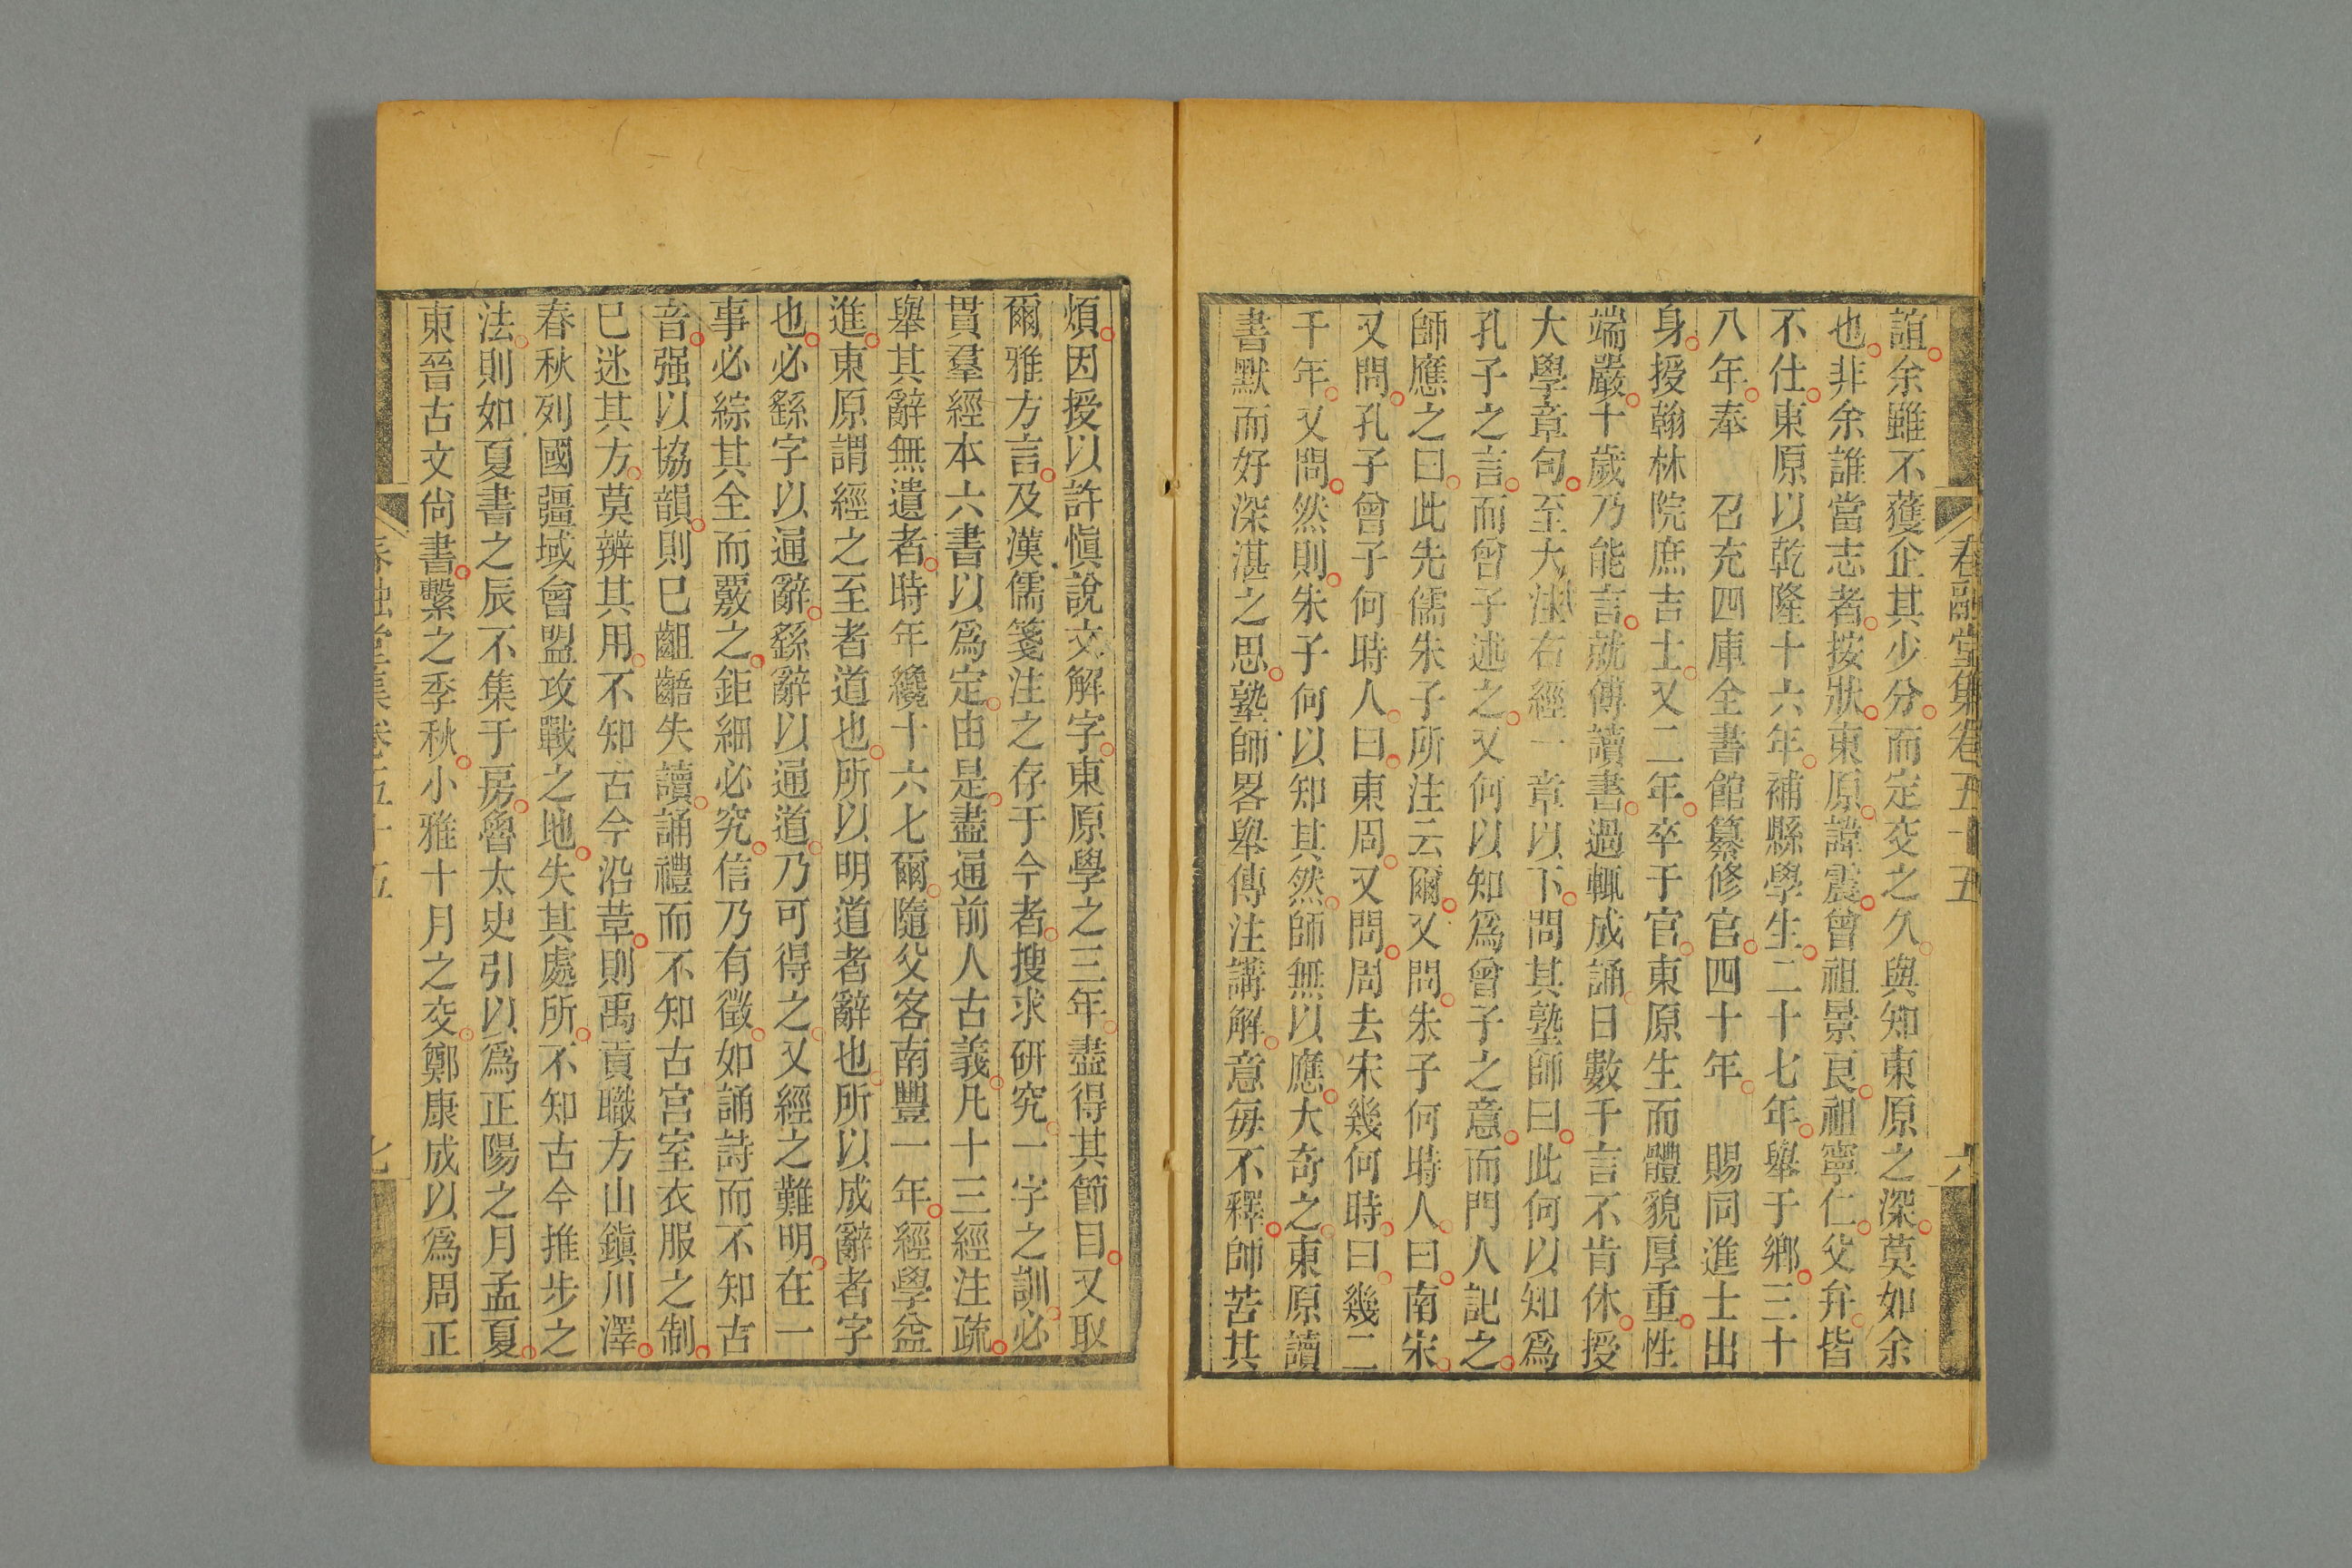 春融堂集卷五十五
六
誼余雖不獲企其少分而定交之久與知東原之深莫如余
也非余誰當志者按狀東原諱震曾祖景良祖寧仁父弁皆
不仕東原以乾隆十六年補縣學生二十七年舉于鄉三十
八年奉 召充四庫全書館纂修官四十年 賜同進士出
身授翰林院庶吉士又二年卒于官東原生而體貌厚重性
端嚴十歲乃能言就傅讀書過輒成誦日數千言不肯休授
大學章句至大注右經一章以下問其塾師曰此何以知爲
孔子之言而曾子述之又何以知爲曾子之意而門人記之
師應之曰此先儒朱子所注云爾又問朱子何時人曰南宋
又問孔子曾子何時人曰東周又問周去宋幾何時曰幾二
千年又問然則朱子何以知其然師無以應大奇之東原讀
書默而好深湛之思塾師畧舉傳注講解意每不釋師苦其
煩因授以許慎說文解字東原學之三年盡得其節目又取
爾雅方言及漢儒箋注之存于今者搜求研究一字之訓必
貫羣經本六書以爲定由是盡通前人古義凡十三經注疏
舉其辭無遺者時年纔十六七爾隨父客南豐一年經學益
進東原謂經之至者道也所以明道者辭也所以成辭者字
也必繇字以通辭繇辭以通道乃可得之又經之難明在一
事必綜其全而覈之鉅細必究信乃有徵如誦詩而不知古
音强以協韻則已齟齬失讀誦禮而不知古宮室衣服之制
已迷其方莫辨其用不知古今沿革則禹貢職方山鎮川澤
春秋列國疆域會盟攻戰之地失其處所不知古今推步之
法則如夏書之辰不集于房魯太史引以爲正陽之月孟夏
東晉古文尚書繫之季秋小雅十月之交鄭康成以爲周正
春融堂集卷五十五
七